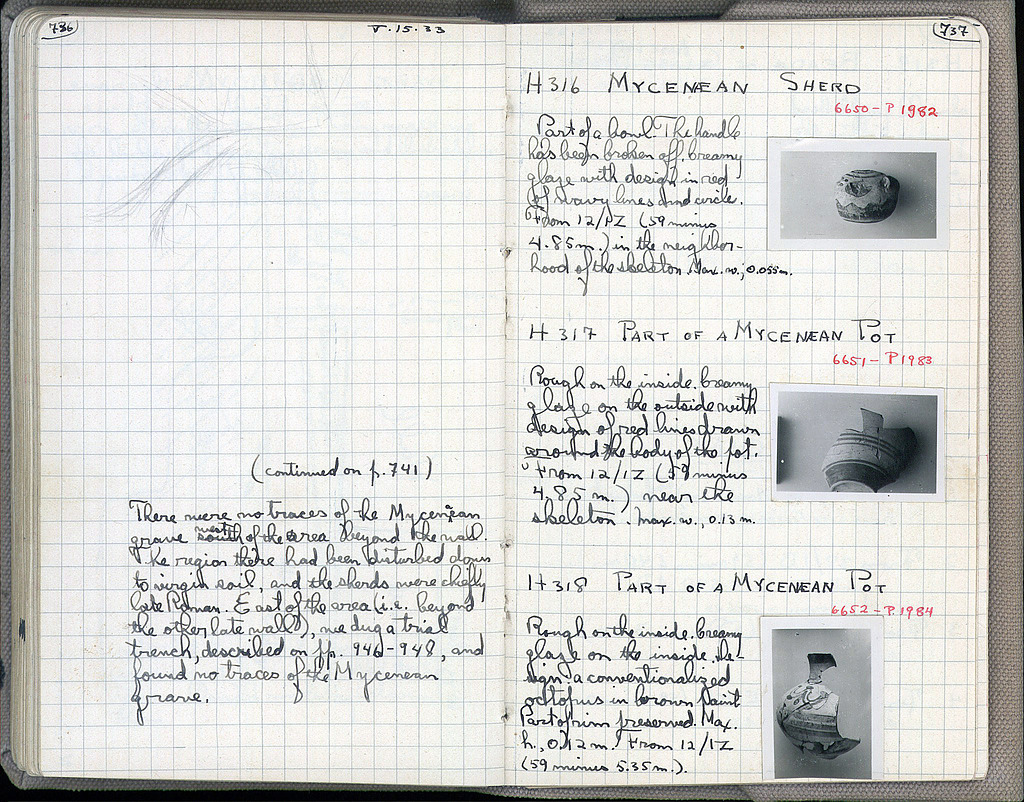 736
V.15.33
(continued on p. 741)
There were no traces of the Mycenæan
grave west south of the area beyond the wall.
The region there had been disturbed down
to virgin soil, and the sherds were chiefly
late Roman. East of the area (i.e. beyond
the other late wall), we dug a trial
trench, described on pp. 946-948, and
found no traces of the Mycenean
grave.
737
H 316 MYCENÆAN SHERD
6650-P 1982
Part of a bowl. The handle
has been broken off. Creamy
glaze with design in red
of wavy lines and circle.
From 12/ΙΖ (59 minus
4.85 m.) in the neighbor-
hood of the skeleton. Max. w., 0.055 m.
H 317 PART OF A MYCENÆAN POT
6651-P 1983
Rough on the inside. Creamy
glaze on the outside with
design of red lines drawn
around the body of the pot.
From 12/ΙΖ (59 minus
4.85 m.) near the
skeleton. Max. w., 0.13 m.
H 318 PART OF A MYCENÆAN POT
6652-P 1984
Rough on the inside. Creamy
glaze on the inside. De-
sign: a conventionalized
octopus in brown paint
Part of rim preserved. Max.
h., 0.12 m. From 12/ΙΖ
(59 minus 5.35 m.).